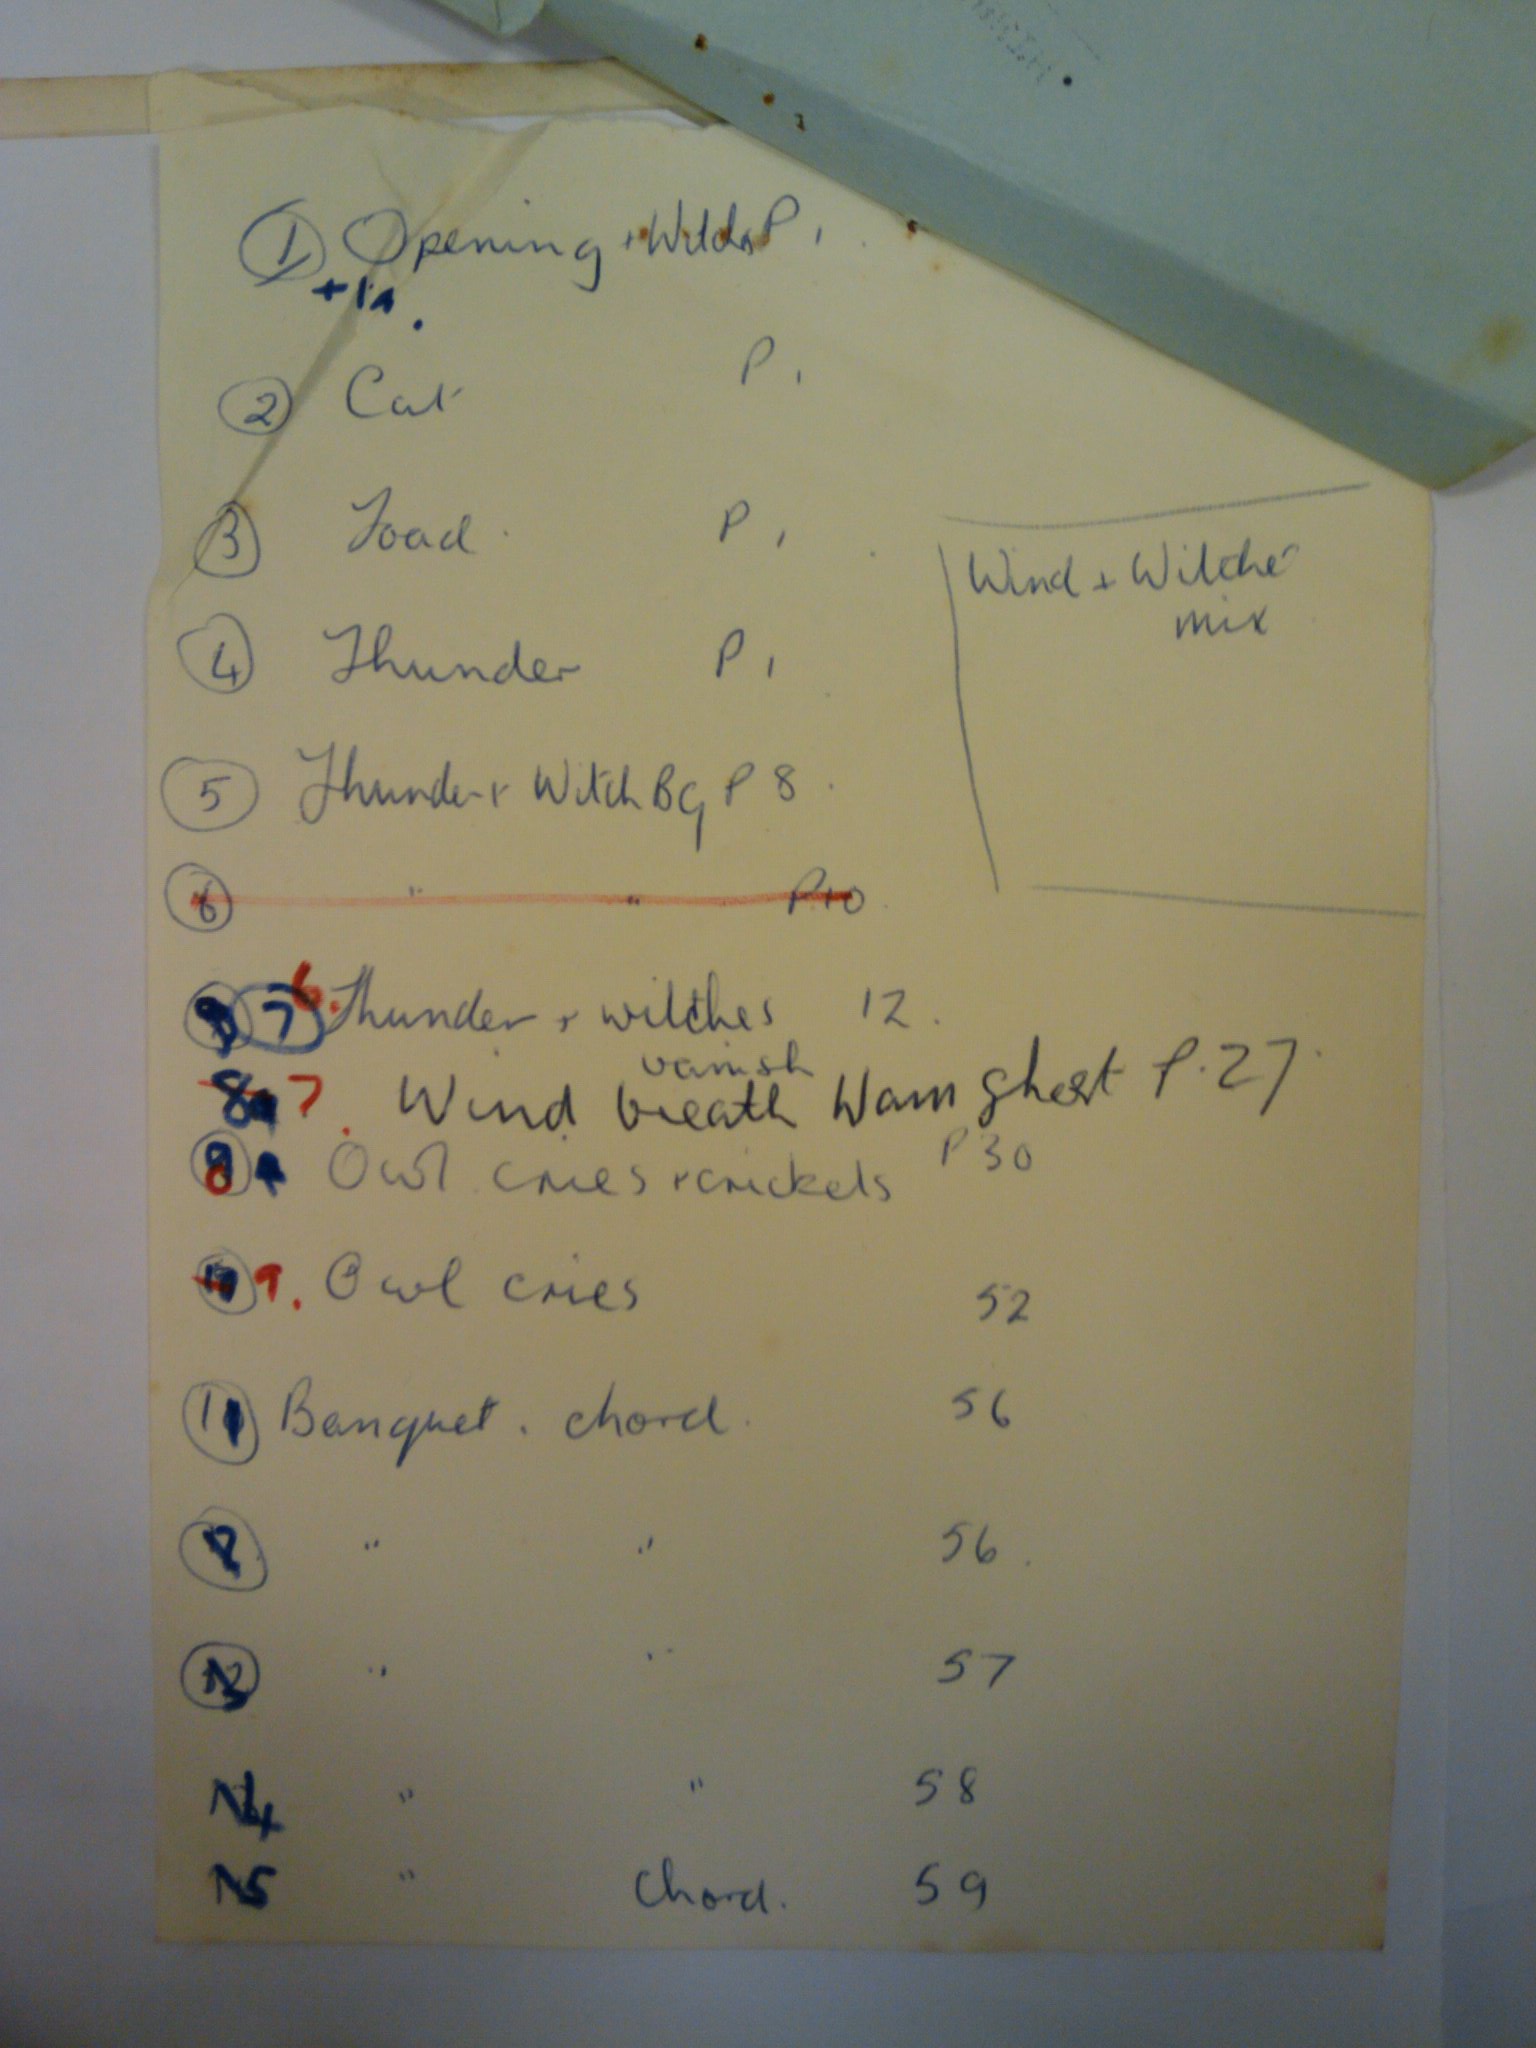 1 Opening + Witches P 1
+1a.
2 Cat P 1
3 Toad P 1
4 Thunder P 1
Wind + Witches
mix
5 Thunder + Witch BG P 8
6 " " P10
7 6. Thunder + witches 12
vanish
8a 7. Wind breath Wam ghest P. 27
Owl cries + crickets P 30
9. Owl cries 52
11 Banquet. chord 56
" " 56
" " 57
14 " " 58
15 " Chord. 59